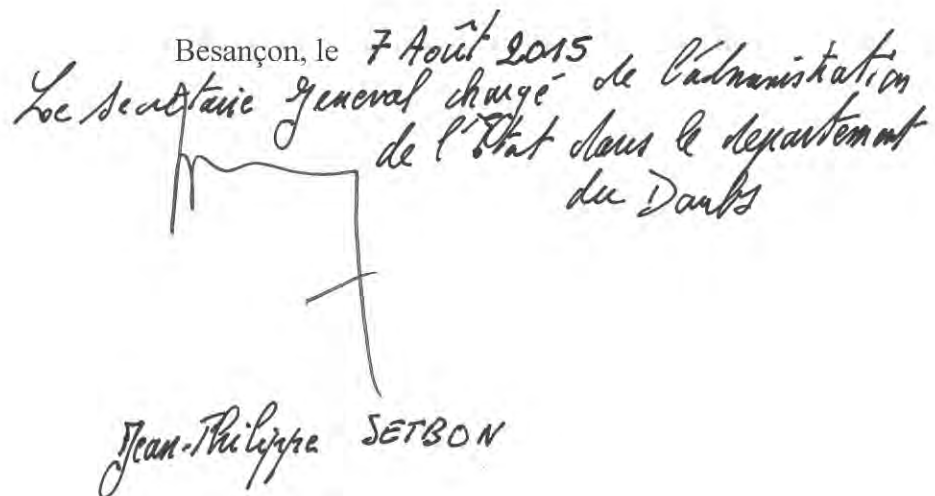 Besançon, le 7 Août 2015
Le Secrétaire General chargé de l'administration
de l'Etat dans le departement
du Doubs
Jean-Philippe SETBON